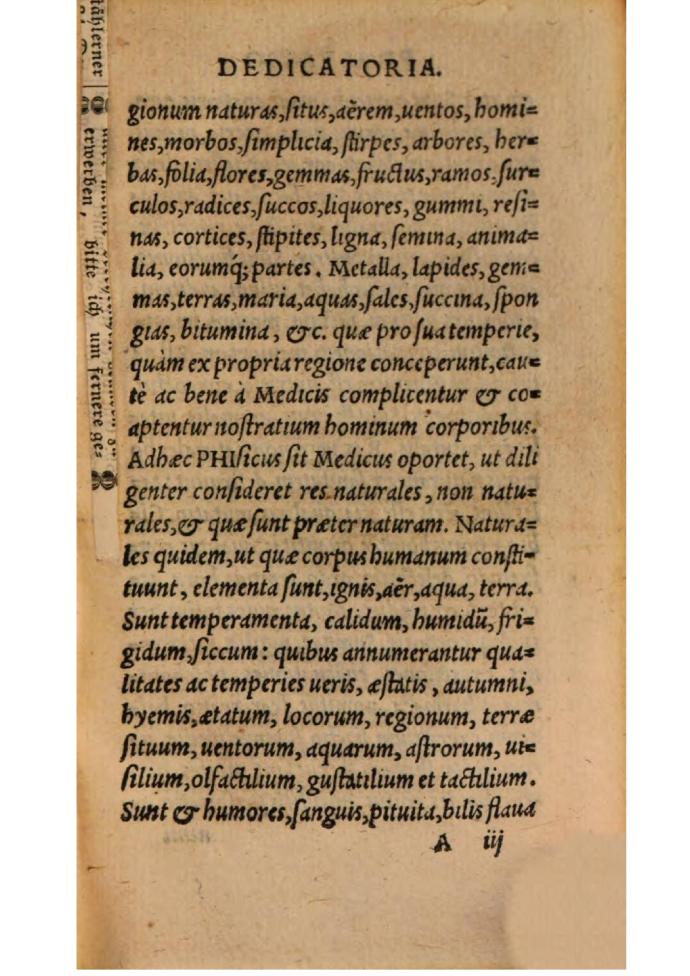 DEDICATORIA.
gionum naturas,ſitus,aërem,uentos, homi=
nes,morbos,ſimplicia, ſtirpes, arbores, her=
bas,folia,flores,gemmas,fructus,ramos.ſur=
culos,radices,ſuccos,liquores, gummi, reſi=
nas, cortices, ſtipites, ligna, ſemina, anima=
lia, eorumq́; partes. Metalla, lapides, gem=
mas,terras,maria,aquas,ſales,ſuccina, ſpon
gias, bitumina, &c. quæ pro ſua temperie,
quàm ex propria regione conceperunt,cau=
tè ac bene à Medicis complicentur & co=
aptentur noſtratium hominum corporibus.
Adhæc PHIſicus ſit Medicus oportet, ut dili
genter conſideret res naturales, non natu=
rales,& quæ ſunt præter naturam. Natura=
les quidem,ut quæ corpus humanum conſti-
tuunt, elementa ſunt,ignis,aër,aqua, terra.
Sunt temperamenta, calidum, humidũ, fri=
gidum,ſiccum: quibus annumerantur qua=
litates ac temperies ueris, æſtatis, autumni,
hyemis,ætatum, locorum, regionum, terræ
ſituum, uentorum, aquarum, aſtrorum, ui=
ſilium,olfactilium, guſtatilium et tactilium.
Sunt & humores,ſanguis,pituita,bilis flaua
A iij
ſtählerner
erwerben, bitte ich um fernere ge=